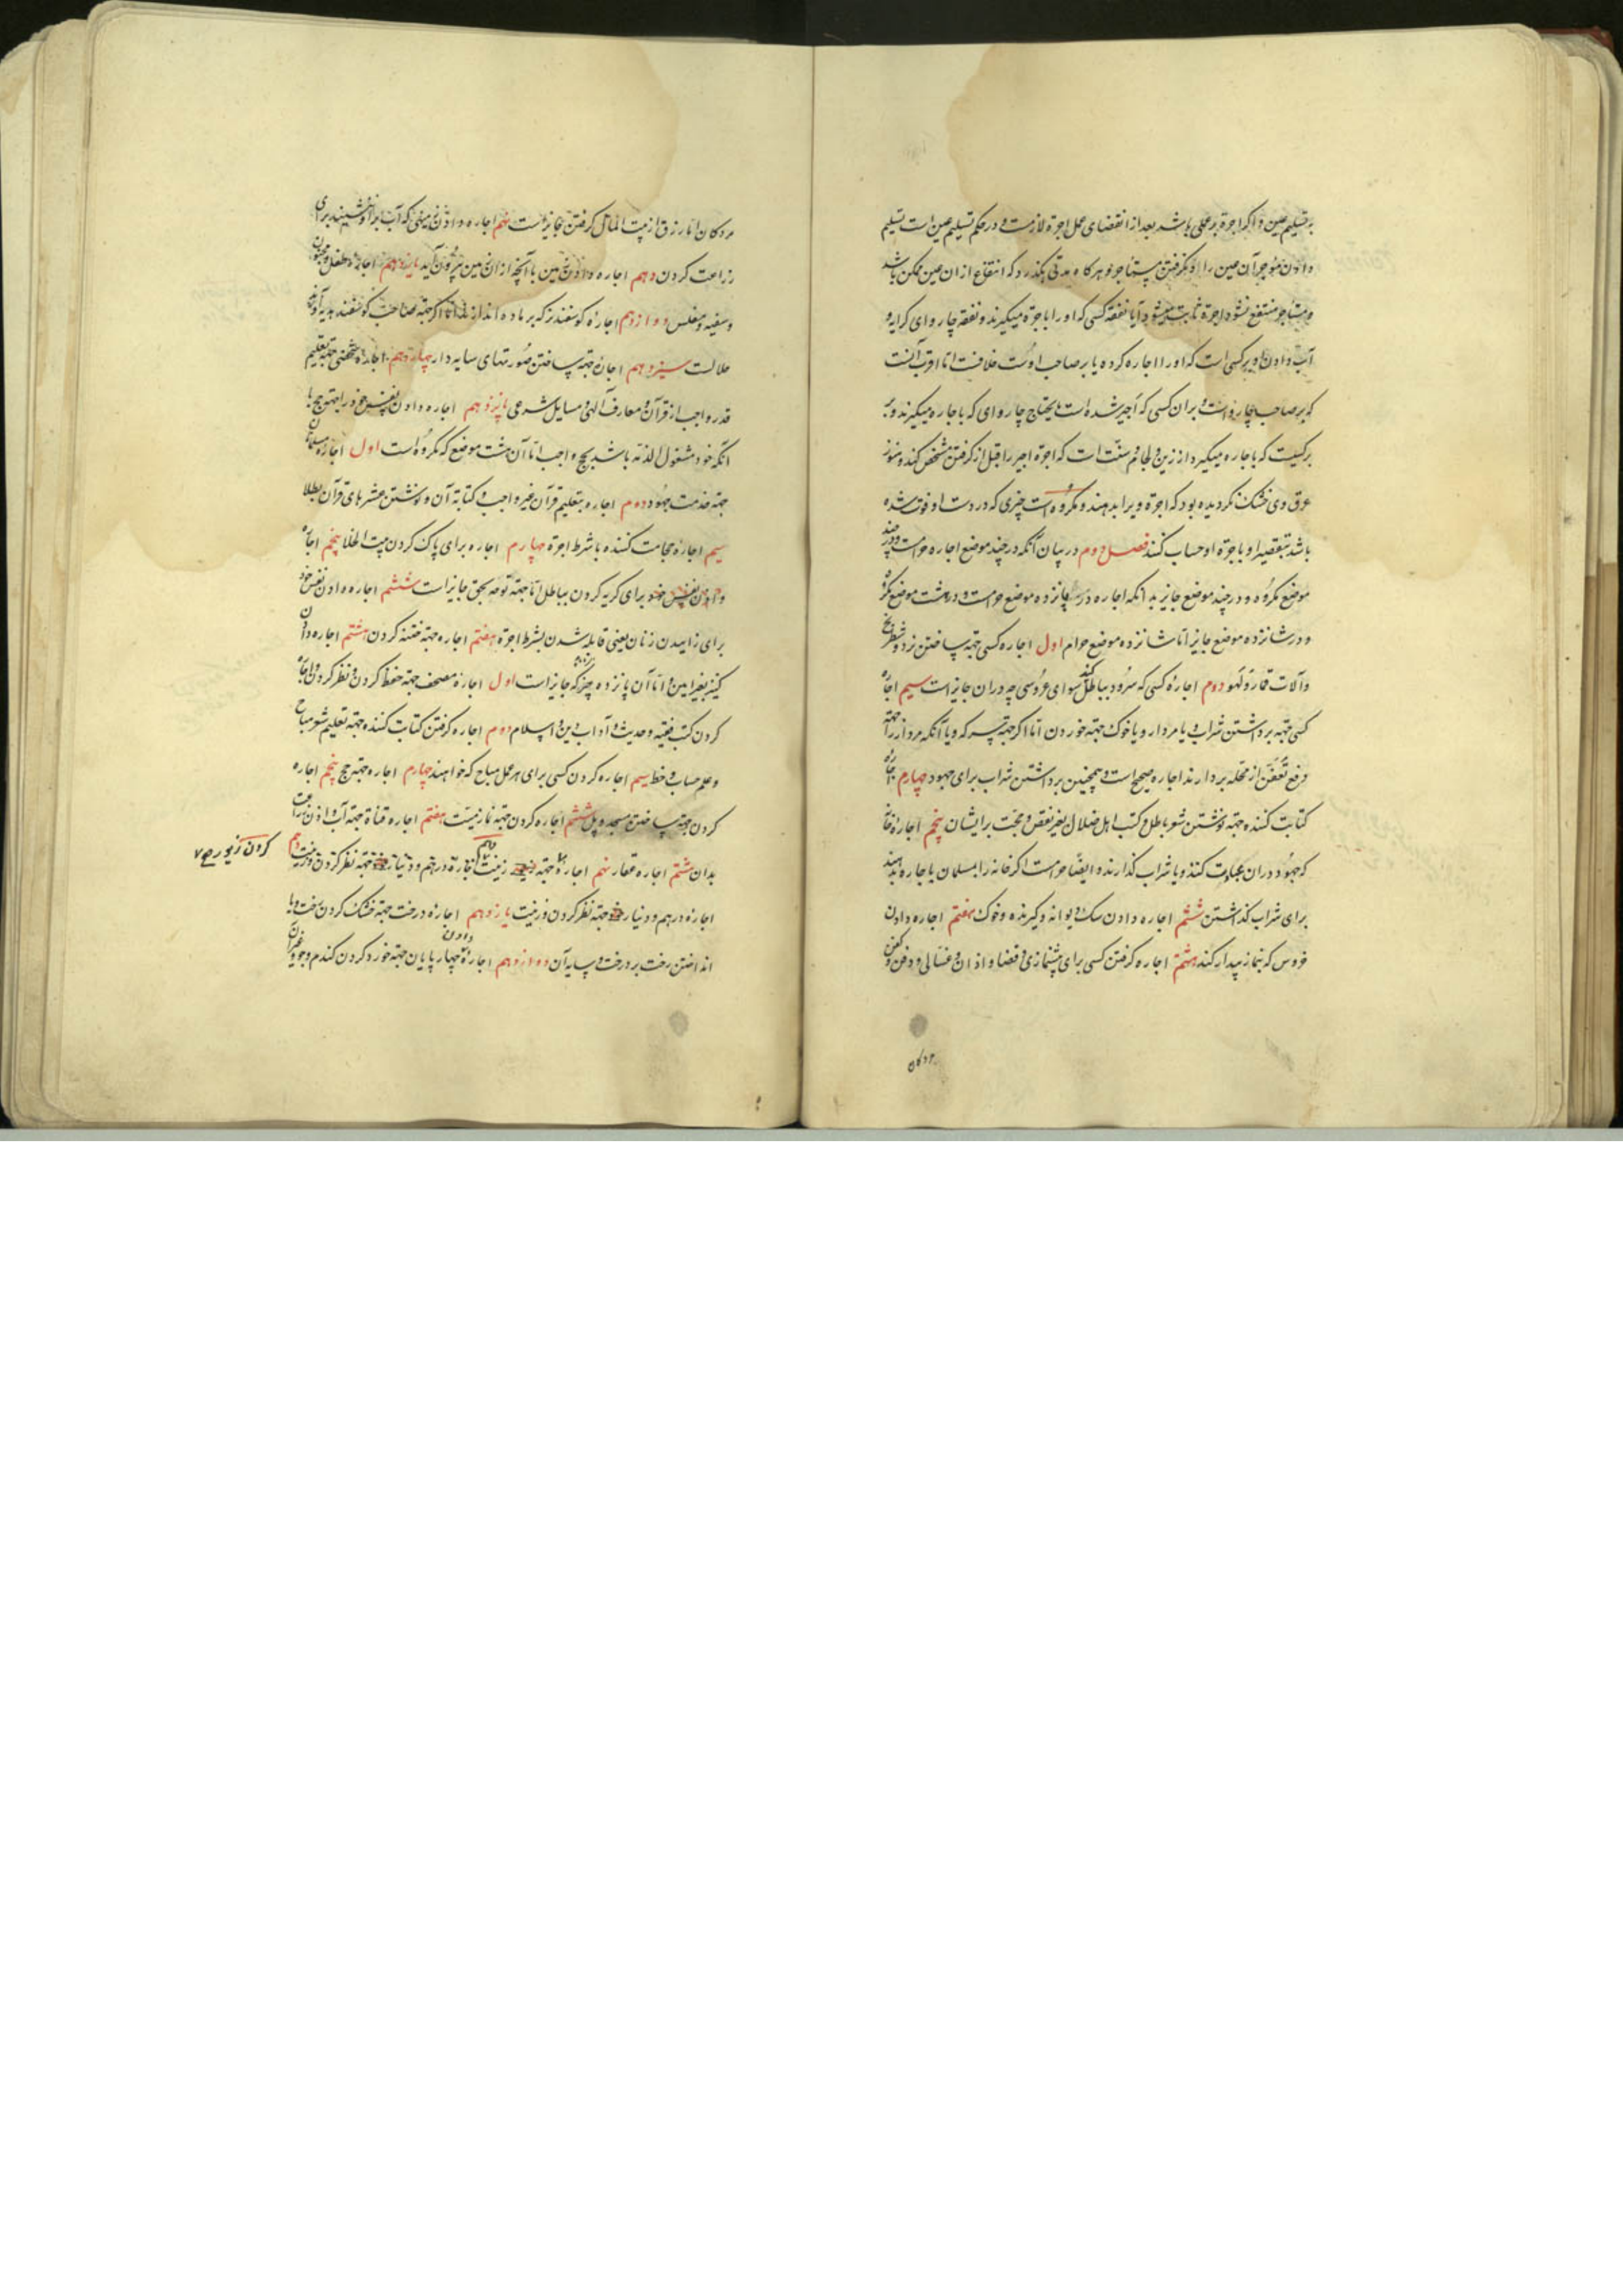 به تسلیم عین و اگر اجرة بر عملی باشد بعد از انقضای عمل اجرة لازمست و در حکم تسلیم عین است تسلیم
دادن موجر آن عین را و نگرفتن مستاجر و هرکاه مدتی بگذرد که انتفاع از ان عین ممکن باشد
و مستاجر منتفع نشود اجرة ثابت میشود و آیا نفقه کسی که او را باجرة میگیرند و نفقه چاروای کرایه و
آب دادن او بر کسی است که او را اجاره کرده یا بر صاحب اوست خلافست اما اقرب آنست
که بر صاحب چارواست و بر ان کسی که اجیر شده است مایحتاج چاروای که باجاره میگیرند و بر
برکیست که باجاره میگیرد از زین و لجام و سنّت است که اجرة اجیر را قبل از گرفتن مشخص کند و هنوز
عرق وی خشک نگردیده بود که اجرة ویرا بدهند و مکروه است چیزی که در دست او فوت شده
باشد بتقصیر او باجرة او حساب کنند فصل دوم در بیان آنکه در چند موضع اجاره حرامست و در چند
موضع مکروه و در چند موضع جایز بدانکه اجاره در پانزده موضع حرامست و در هشت موضع مکروه
و در شانزده موضع جایز اما شانزده موضع حرام اول اجاره کسی جهة ساختن نرد و شطرنج
و آلات قمار و لهو دوم اجارهٔ کسی که سرود بباطل کند سوای عروسی چه در ان جایز است سیم اجاره
کسی جهة برداشتن شراب و یا مردار و یا خوک جهة خوردن اما اگر جهة سرکه و یا آنکه مردار را جهة
رفع تعفّن از محله بردارند اجاره صحیح است و همچنین برداشتن شراب برای جهود چهارم اجاره
کتابت کننده جهة نوشتن شعر باطل و کتب اهل ضلال بغیر نقض و حجّت بر ایشان پنجم اجارهٔ خانه
که جهود در ان عبادت کنند و یا شراب گذارند و ایضا حرامست اگر خانه را بمسلمان باجاره بدهند
برای شراب گذاشتن ششم اجاره دادن سک دیوانه و گیرنده و خوک هفتم اجاره دادن
خروس که بنماز بیدار کند هشتم اجاره گرفتن کسی برای پیشنمازی و قضا و اذان و غسالی و دفن و کفن
مردکان
مردکان اما رزق از بیت المال گرفتن جایز است نهم اجاره دادن زمینی که آب بر او نشیند برای
زراعت کردن دهم اجاره دادن زمین با آنچه از ان زمین بیرون آید یازدهم اجارهٔ طفل و مجنون
و سفیه و مفلس دوازدهم اجارهٔ گوسفند نر که بر ماده اندازند اما اگر جهة صاحب گوسفند هدیه آورند
حلالست سیزدهم اجارهٔ جهة ساختن صورتهای سایه دار چهاردهم اجارهٔ شخصی جهة تعلیم
قدر واجب از قرآن و معارف الهی و مسایل شرعی پانزدهم اجاره دادن نفس خود را جهة حج با
آنکه خود مشغول الذمّه باشد بحج واجب اما آن هشت موضع که مکروه است اول اجاره مسلمان
جهة خدمت جهود دوم اجاره بتعلیم قرآن غیر واجب و کتابة آن و نوشتن عشرهای قرآن بطلا
سیم اجاره حجامت کننده با شرط اجرة چهارم اجاره برای پاک کردن بیت الخلا پنجم اجاره
دادن نفس خود برای گریه کردن بباطل اما جهة نوحه بحق جایز است ششم اجاره دادن نفس خود
برای زاییدن زنان یعنی قابله شدن بشرط اجرة هفتم اجاره جهة ختنه کردن هشتم اجاره دادن
کنیز بغیر امین و اما آن پانزده چیز که جایز است اول اجارهٔ مصحف جهة حفظ کردن و نظر کردن و اجاره
کردن کتب فقیه و حدیث و آداب دین و اسلام دوم اجاره گرفتن کتابت کننده جهة تعلیم شعر مباح
و علم حساب و خط سیم اجاره کردن کسی برای هر عمل مباح که خواهند چهارم اجاره جهة حج پنجم اجاره
کردن جهة ساختن مسجد و پل ششم اجاره کردن جهة نماز میّت هفتم اجاره قناة جهة آب دادن زراعت
بدان هشتم اجاره عقار نهم اجارهٔ جهة زینت اجاره درهم و دینار جهة نظر کردن و زینت دهم
کردن زیور صح ٧
اجارهٔ درهم و دینار جهة نظر کردن و زینت یازدهم اجارهٔ درخت جهة خشک کردن رخت و یا
انداختن رخت بر درخت و سایه آن دوازدهم اجاره دادن چهارپایان جهة خورد کردن گندم و جو و غیر آن